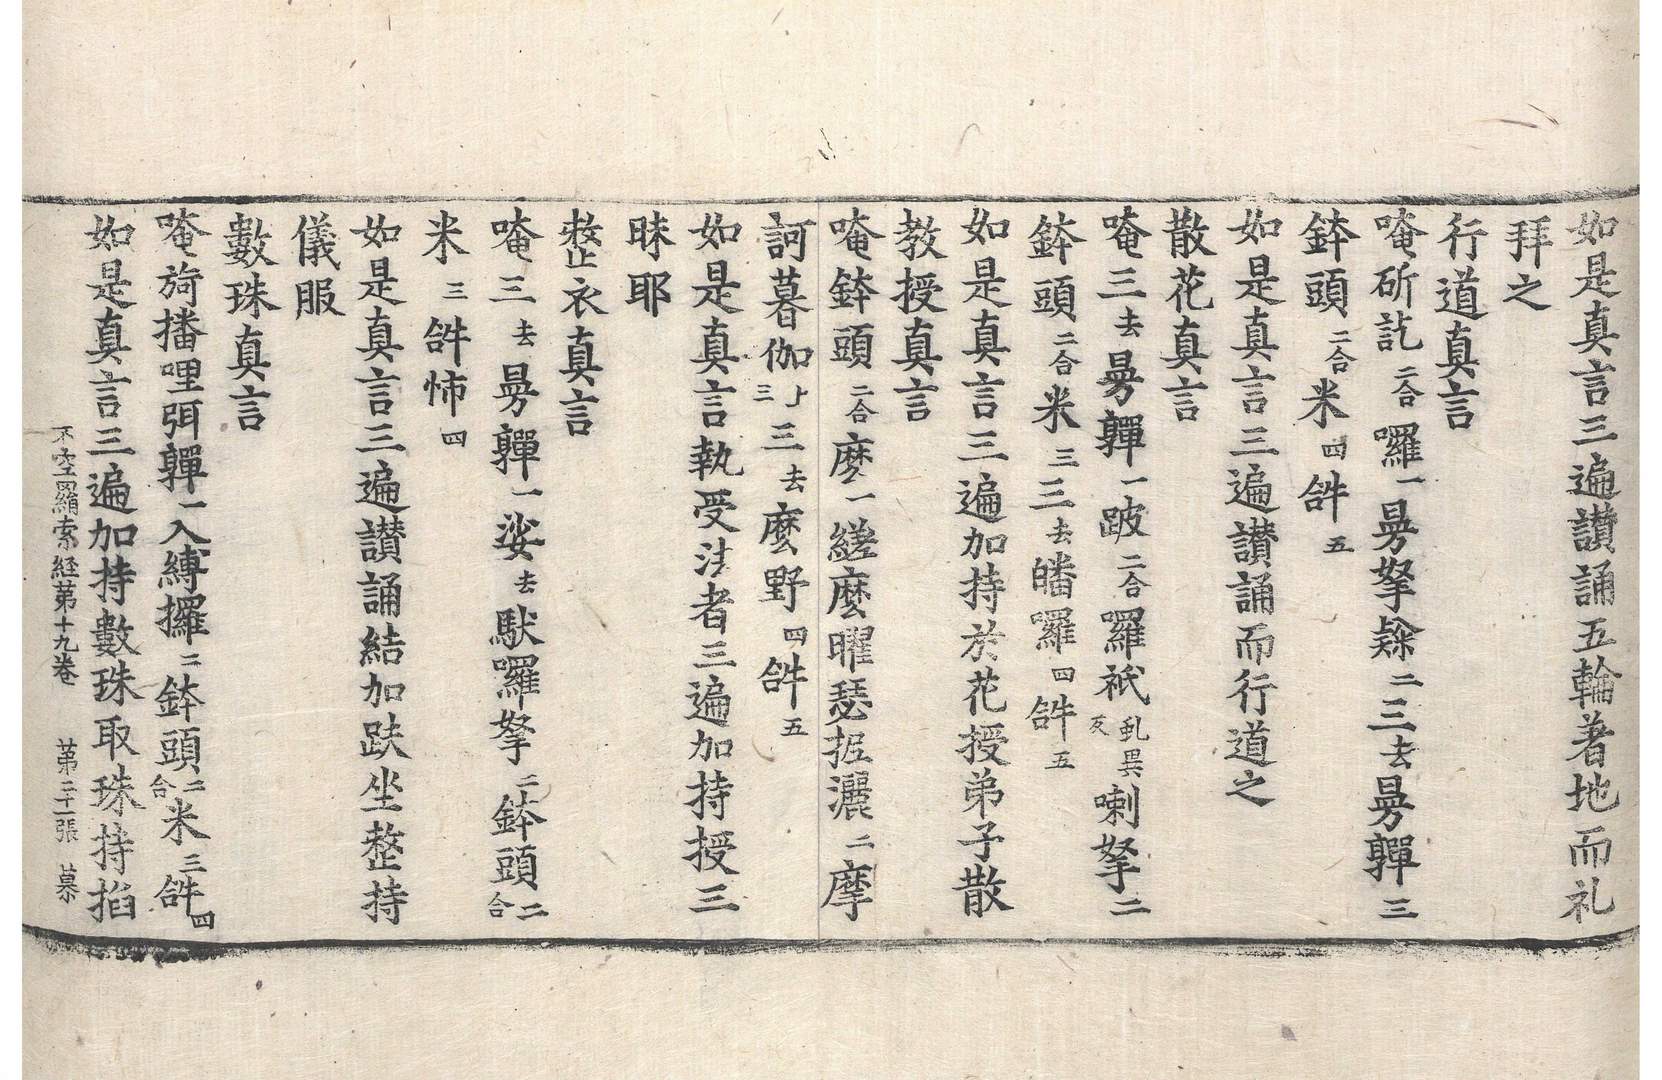 如是真言三遍讃誦五輪著地而礼
拜之
行道真言
唵斫訖二合囉一曼拏㘓二三去曼𤚥三
鉢頭二合米四𤙖五
如是真言三遍讃誦而行道之
散花真言
唵三去曼𤚥一跛二合囉祇虬異反喇拏二
鉢頭二合米三三去皤囉四𤙖五
如是真言三遍加持於花授弟子散
教授真言
唵鉢頭二合麼一縒麼曜瑟抳灑二摩
訶暮伽上三三去麼野四𤙖五
如是真言執受法者三遍加持授三
昧耶
整衣真言
唵三去曼𤚥一娑去馱囉拏二鉢頭二合
米三𤙖怖四
如是真言三遍讃誦結加趺坐整持
儀服
數珠真言
唵旖播哩弭𤚥一入縛攞二鉢頭二合米三𤙖四
如是真言三遍加持數珠取珠持掐
不空羂索経苐十九卷 苐二十一張 慕